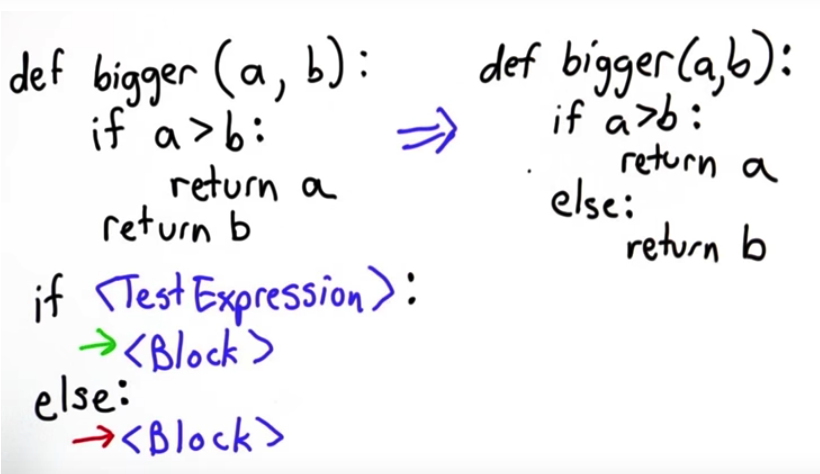 def bigger (a, b):
if a > b:
return a
return b
def bigger(a,b):
if a>b:
return a
else:
return b
if <TestExpression>:
→ <Block>
else:
→ <Block>